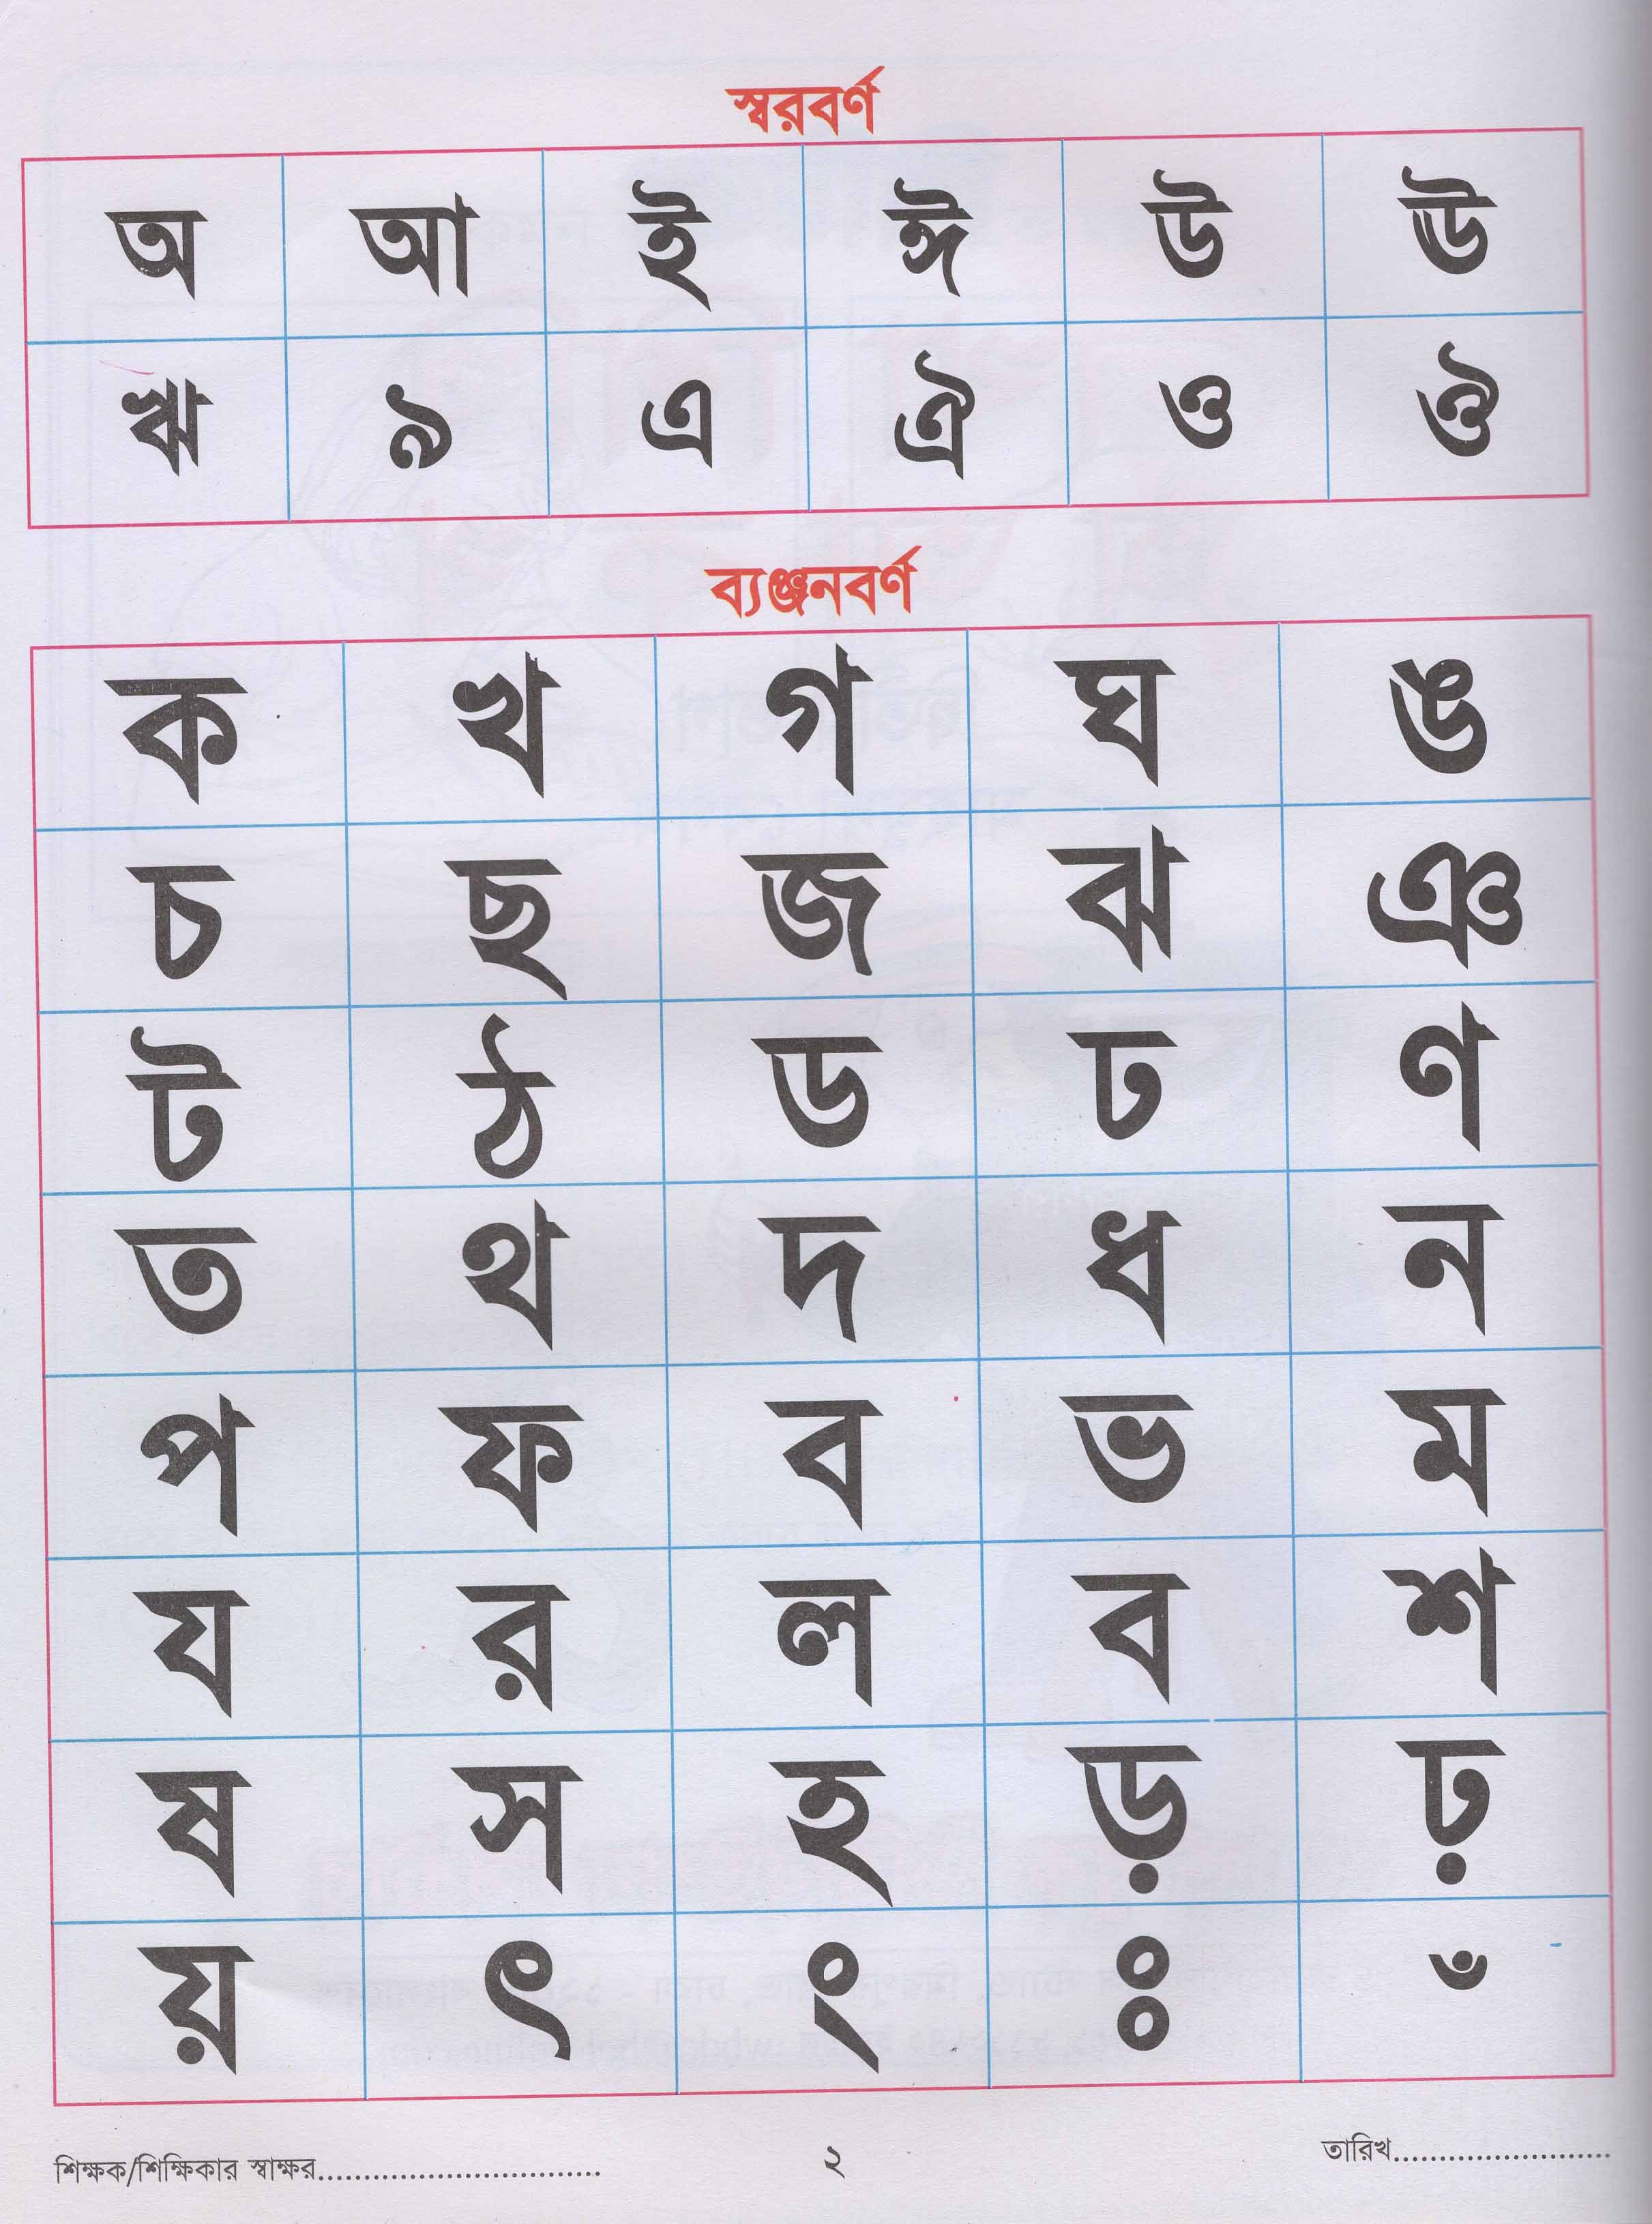 স্বরবর্ণ
অ আ ই ঈ উ ঊ
ঋ ৯ এ ঐ ও ঔ
ব্যঞ্জনবর্ণ
ক খ গ ঘ ঙ
চ ছ জ ঝ ঞ
ট ঠ ড ঢ ণ
ত থ দ ধ ন
প ফ ব ভ ম
য র ল ব শ
ষ স হ ড় ঢ়
য় ৎ ং ঃ ঁ
শিক্ষক/শিক্ষিকার স্বাক্ষর.............................. ২ তারিখ.......................